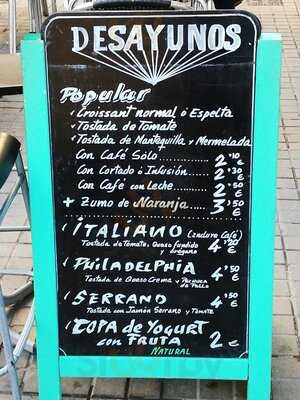 DESAYUNOS
Popular
✓ Croissant normal ó Espelta
✓ Tostada de Tomate
✓ Tostada de Mantequilla y Mermelada
Con Café Sólo............ 2'10 €
Con Cortado ó Infusión..... 2'30 €
Con Café con Leche........ 2'50 €
+ Zumo de Naranja..... 3'50 €
ITALIANO (incluye Café)
Tostada de Tomate, Queso fundido y orégano 4'20 €
PHILADELPHIA 4'50 €
Tostada de Queso Crema y Pechuga de Pollo
SERRANO 4'50 €
Tostada con Jamón Serrano y Tomate
COPA de YOGURT
con FRUTA 2 €
NATURAL